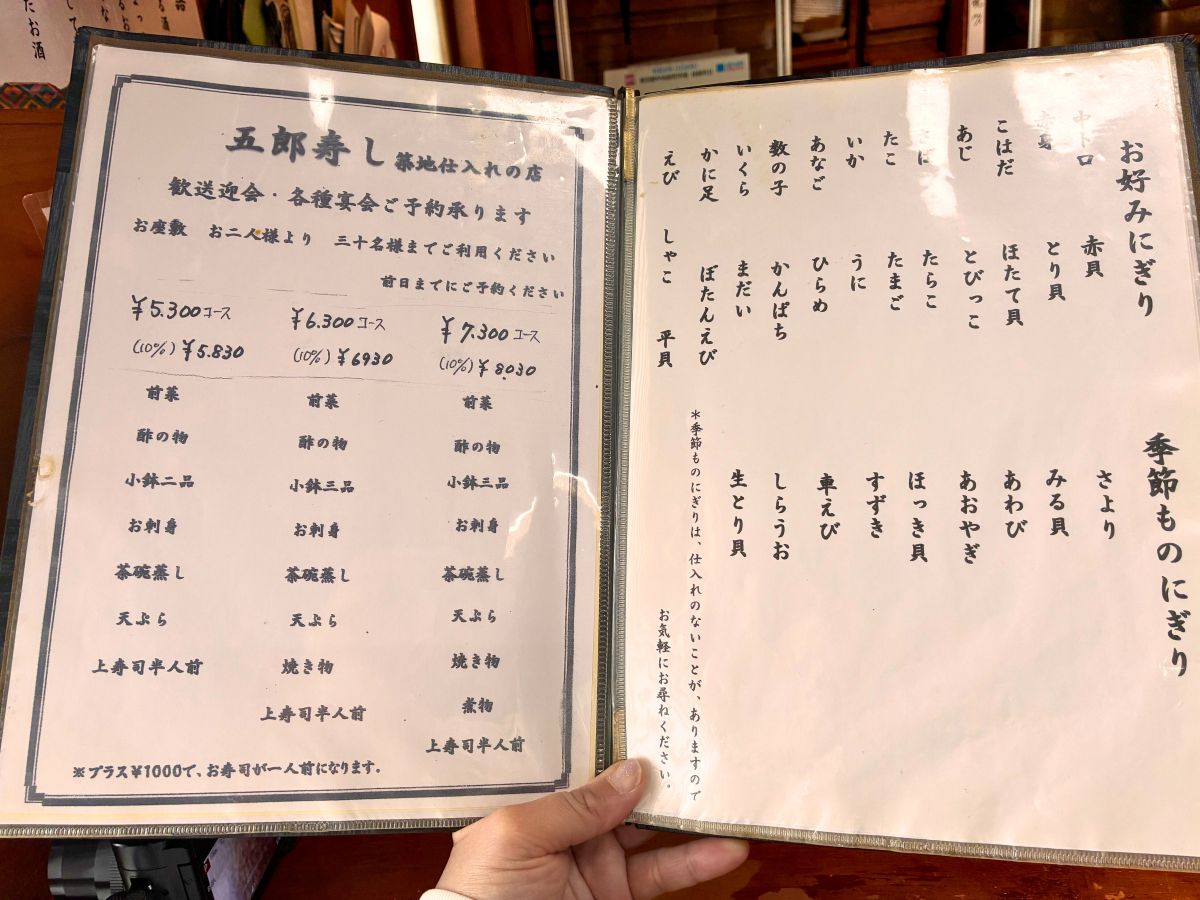 五郎寿し 築地仕入れの店
歓送迎会・各種宴会ご予約承ります
お座敷 お二人様より 三十名様までご利用ください
前日までにご予約ください
¥5.300コース
(10%) ¥5.830
前菜
酢の物
小鉢二品
お刺身
茶碗蒸し
天ぷら
上寿司半人前
¥6.300コース
(10%) ¥6930
前菜
酢の物
小鉢三品
お刺身
茶碗蒸し
天ぷら
焼き物
上寿司半人前
¥7.300コース
(10%) ¥8030
前菜
酢の物
小鉢三品
お刺身
茶碗蒸し
天ぷら
焼き物
煮物
上寿司半人前
※プラス¥1000で、お寿司が一人前になります。
お好みにぎり
中トロ
こはだ
あじ
たこ
いか
あなご
数の子
いくら
かに足
えび
赤貝
とり貝
ほたて貝
とびっこ
たらこ
たまご
うに
ひらめ
かんぱち
まだい
ぼたんえび
しゃこ
平貝
季節ものにぎり
さより
みる貝
あわび
あおやぎ
ほっき貝
すずき
車えび
しらうお
生とり貝
*季節ものにぎりは、仕入れのないことが、ありますので
お気軽にお尋ねください。
たお酒